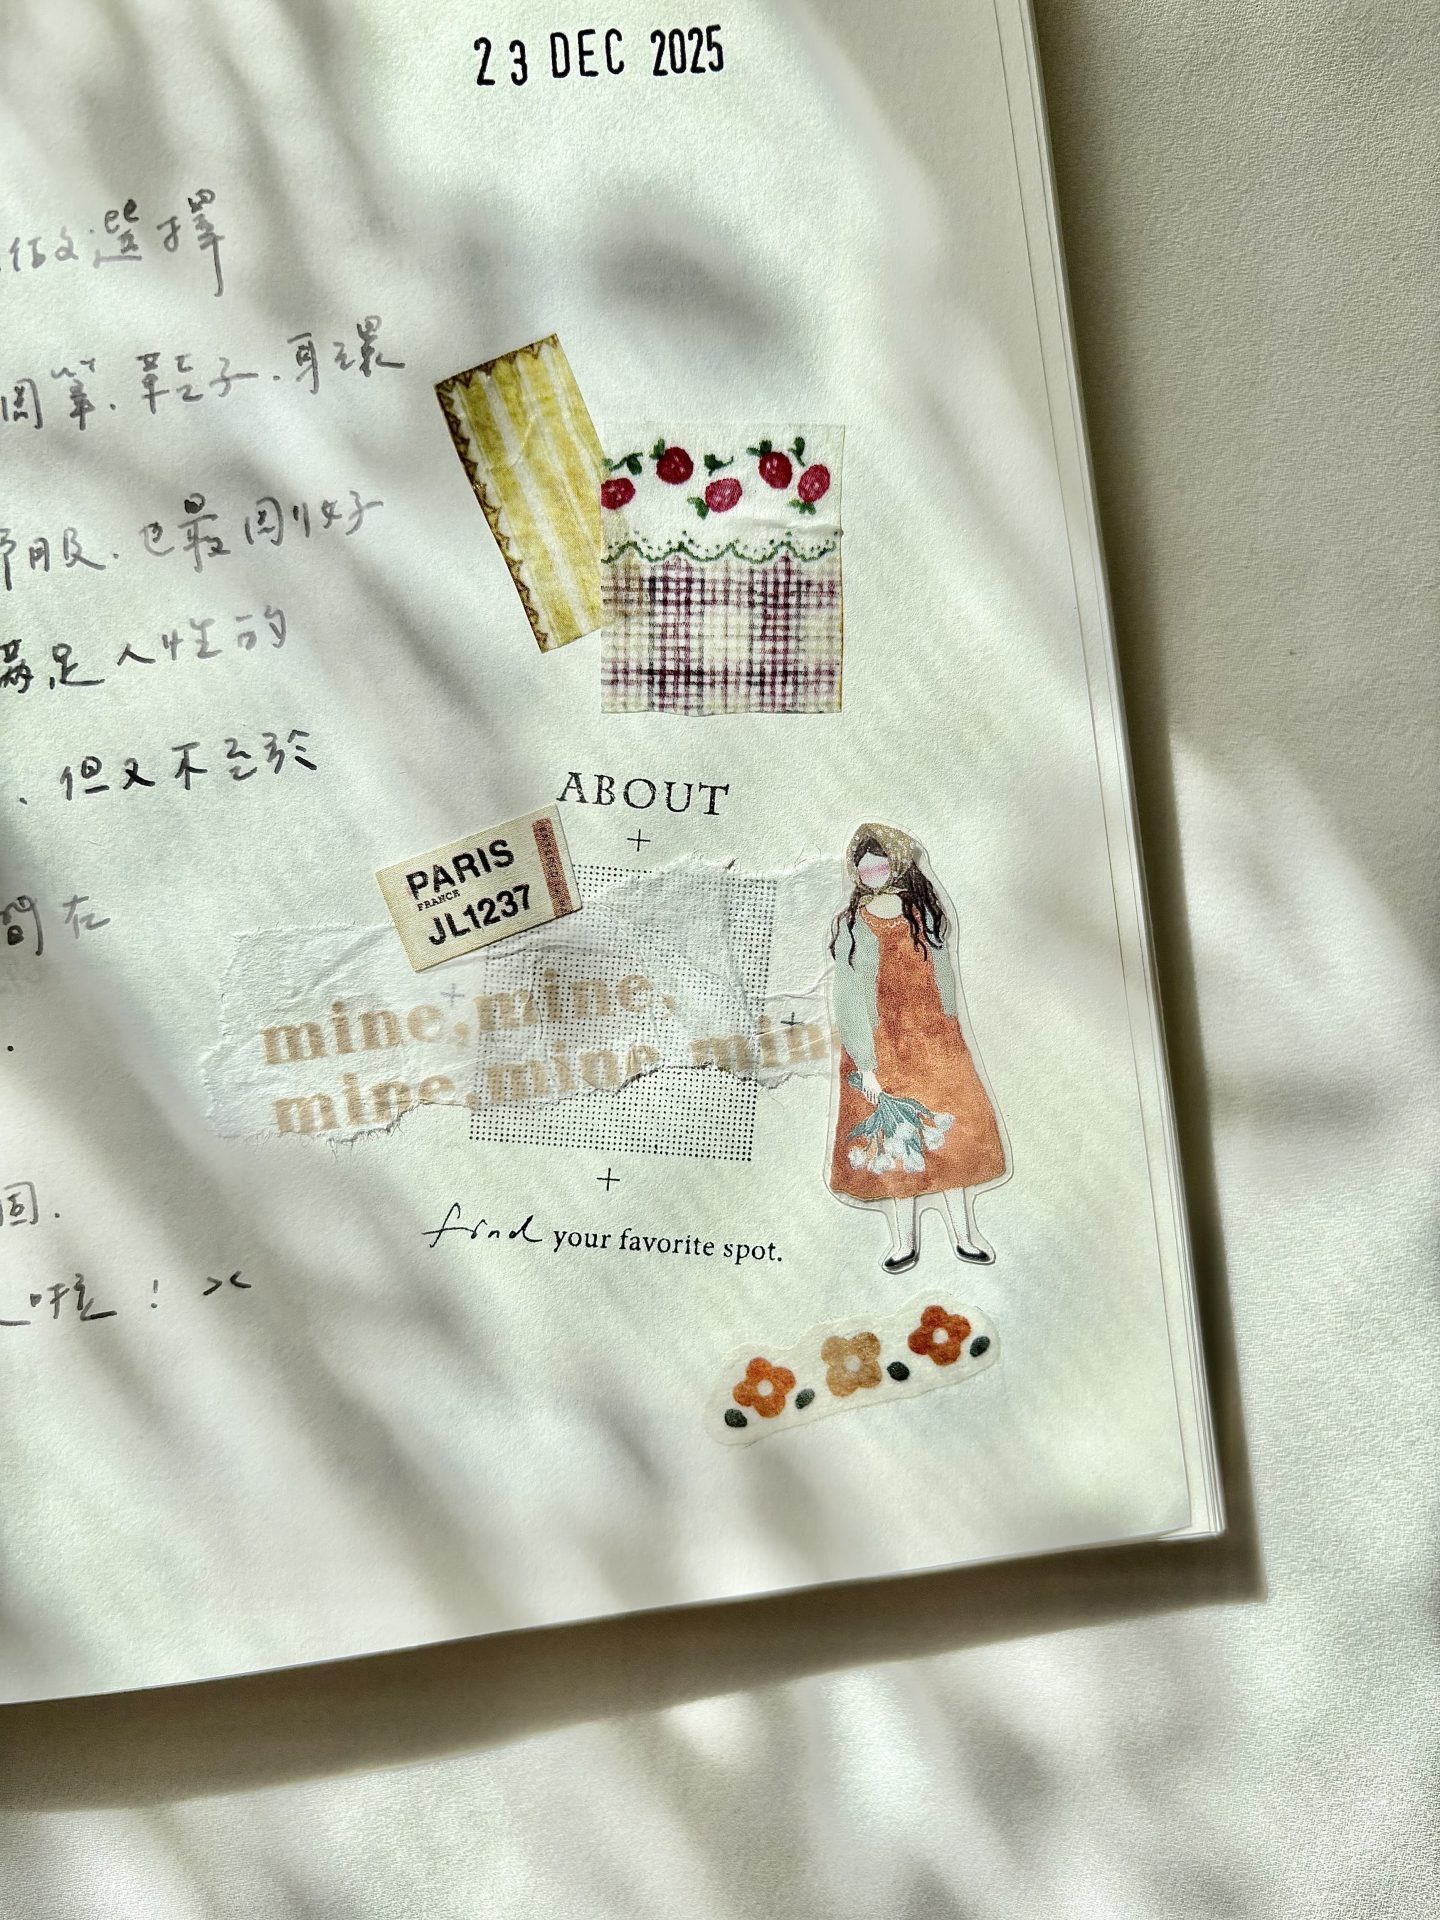 23 DEC 2025
做選擇
圍筆.鞋子.耳環
服.也最剛好
滿足人性的
.但又不至於
間在
固.
啦!><
ABOUT
+
PARIS
FRANCE
JL1237
mine,mine,
mine,mine,mine
+
find your favorite spot.